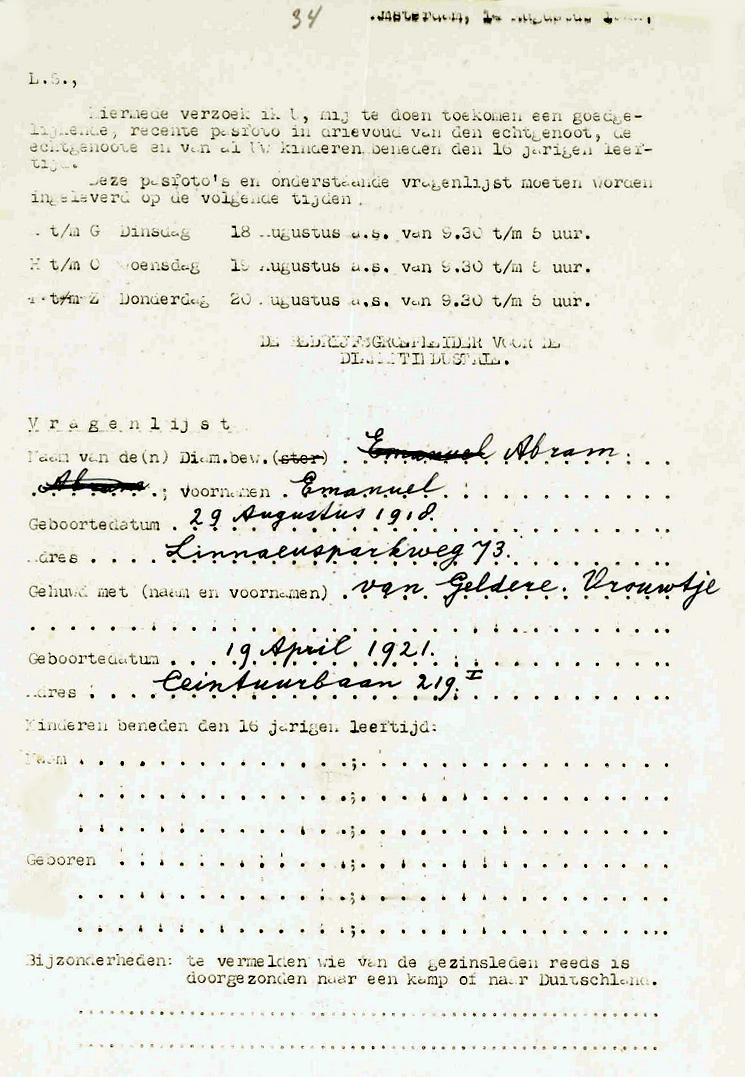 34
Amsterdam, 14 Augustus
L.S.,
Hiermede verzoek ik U, mij te doen toekomen een goedge-
lijkende, recente pasfoto in drievoud van den echtgenoot, de
echtgenoote en van al Uw kinderen beneden den 16 jarigen leef-
tijd.
Deze pasfoto's en onderstaande vragenlijst moeten worden
ingeleverd op de volgende tijden.
A t/m G Dinsdag 18 Augustus a.s. van 9.30 t/m 5 uur.
H t/m O Woensdag 19 Augustus a.s. van 9.30 t/m 5 uur.
P t/m Z Donderdag 20 Augustus a.s. van 9.30 t/m 5 uur.
DE BEDRIJFSGROEPLEIDER VOOR DE
DIAMANTINDUSTRIE.
V r a g e n l i j s t
Naam van de(n) Diam.bew.(ster) . Emanuel Abram
Abram ; voornamen . Emanuel
Geboortedatum . 29 Augustus 1918.
Adres . . . . Linnaeusparkweg 73.
Gehuwd met (naam en voornamen) . van Geldere. Vrouwtje
Geboortedatum . . . 19 April 1921.
Adres . . . . Ceintuurbaan 219.I
Kinderen beneden den 16 jarigen leeftijd:
Naam
Geboren
Bijzonderheden: te vermelden wie van de gezinsleden reeds is
doorgezonden naar een kamp of naar Duitschland.